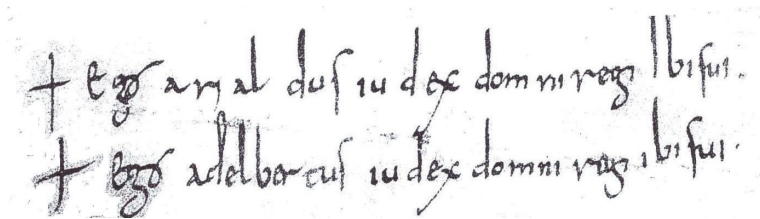 + Ego arialdus iudex domni regi Ibi fui.
+ Ego adelbertus iudex domni regi ibi fui.